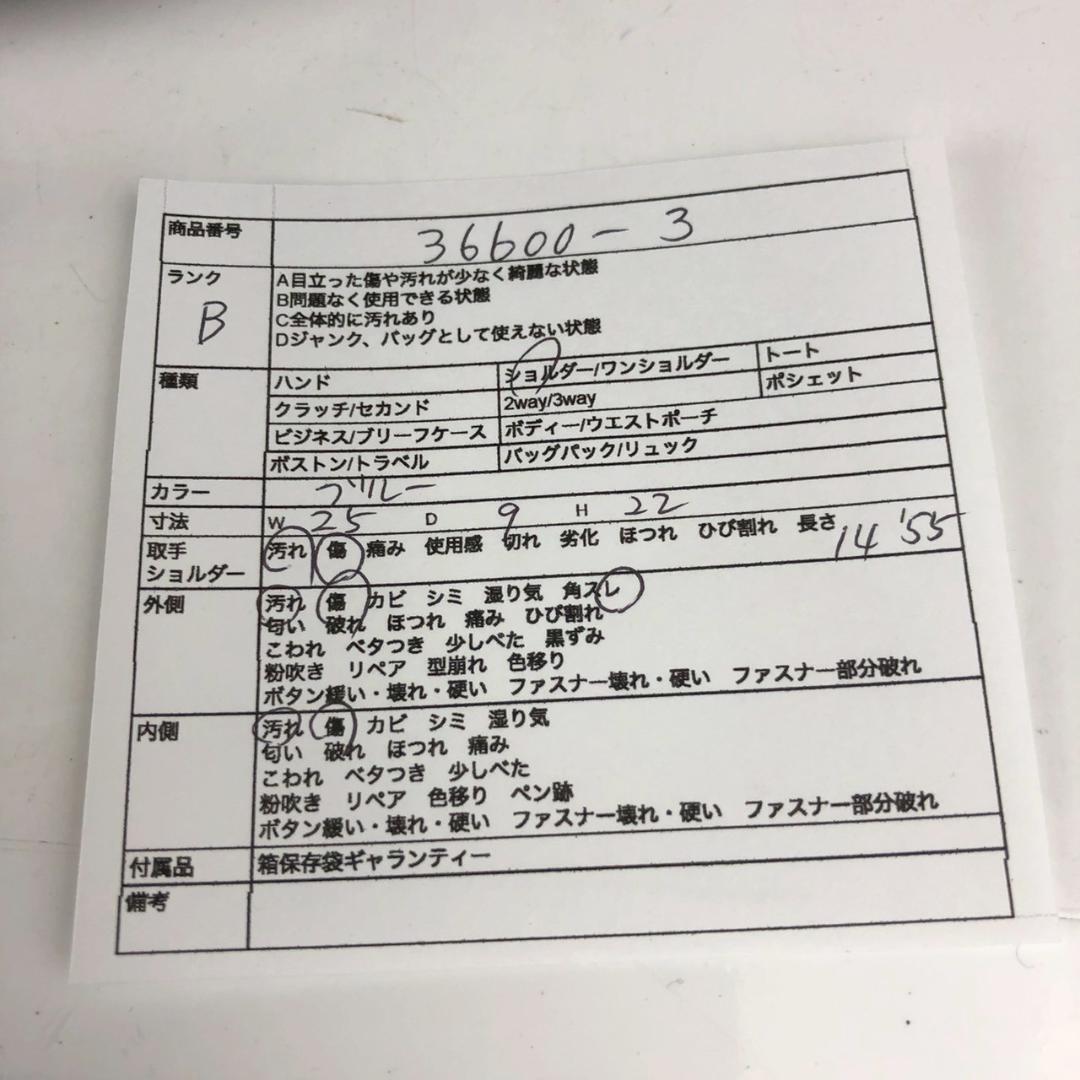 商品番号 36600-3
ランク A目立った傷や汚れが少なく綺麗な状態
B B問題なく使用できる状態
C全体的に汚れあり
Dジャンク、バッグとして使えない状態
種類 ハンド ショルダー/ワンショルダー トート
クラッチ/セカンド 2way/3way ポシェット
ビジネス/ブリーフケース ボディー/ウエストポーチ
ボストン/トラベル バッグパック/リュック
カラー ブルー
寸法 W 25 D 9 H 22
取手 汚れ 傷 痛み 使用感 切れ 劣化 ほつれ ひび割れ 長さ 14 '55
ショルダー
外側 汚れ 傷 カビ シミ 湿り気 角スレ
匂い 破れ ほつれ 痛み ひび割れ
こわれ ベタつき 少しべた 黒ずみ
粉吹き リペア 型崩れ 色移り
ボタン緩い・壊れ・硬い ファスナー壊れ・硬い ファスナー部分破れ
内側 汚れ 傷 カビ シミ 湿り気
匂い 破れ ほつれ 痛み
こわれ ベタつき 少しべた
粉吹き リペア 色移り ペン跡
ボタン緩い・壊れ・硬い ファスナー壊れ・硬い ファスナー部分破れ
付属品 箱保存袋ギャランティー
備考